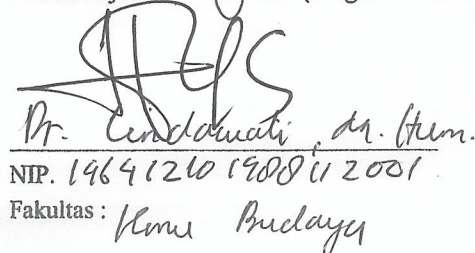 Dr. Lindawati, M. Hum.
NIP. 196412101988112001
Fakultas : Ilmu Budaya